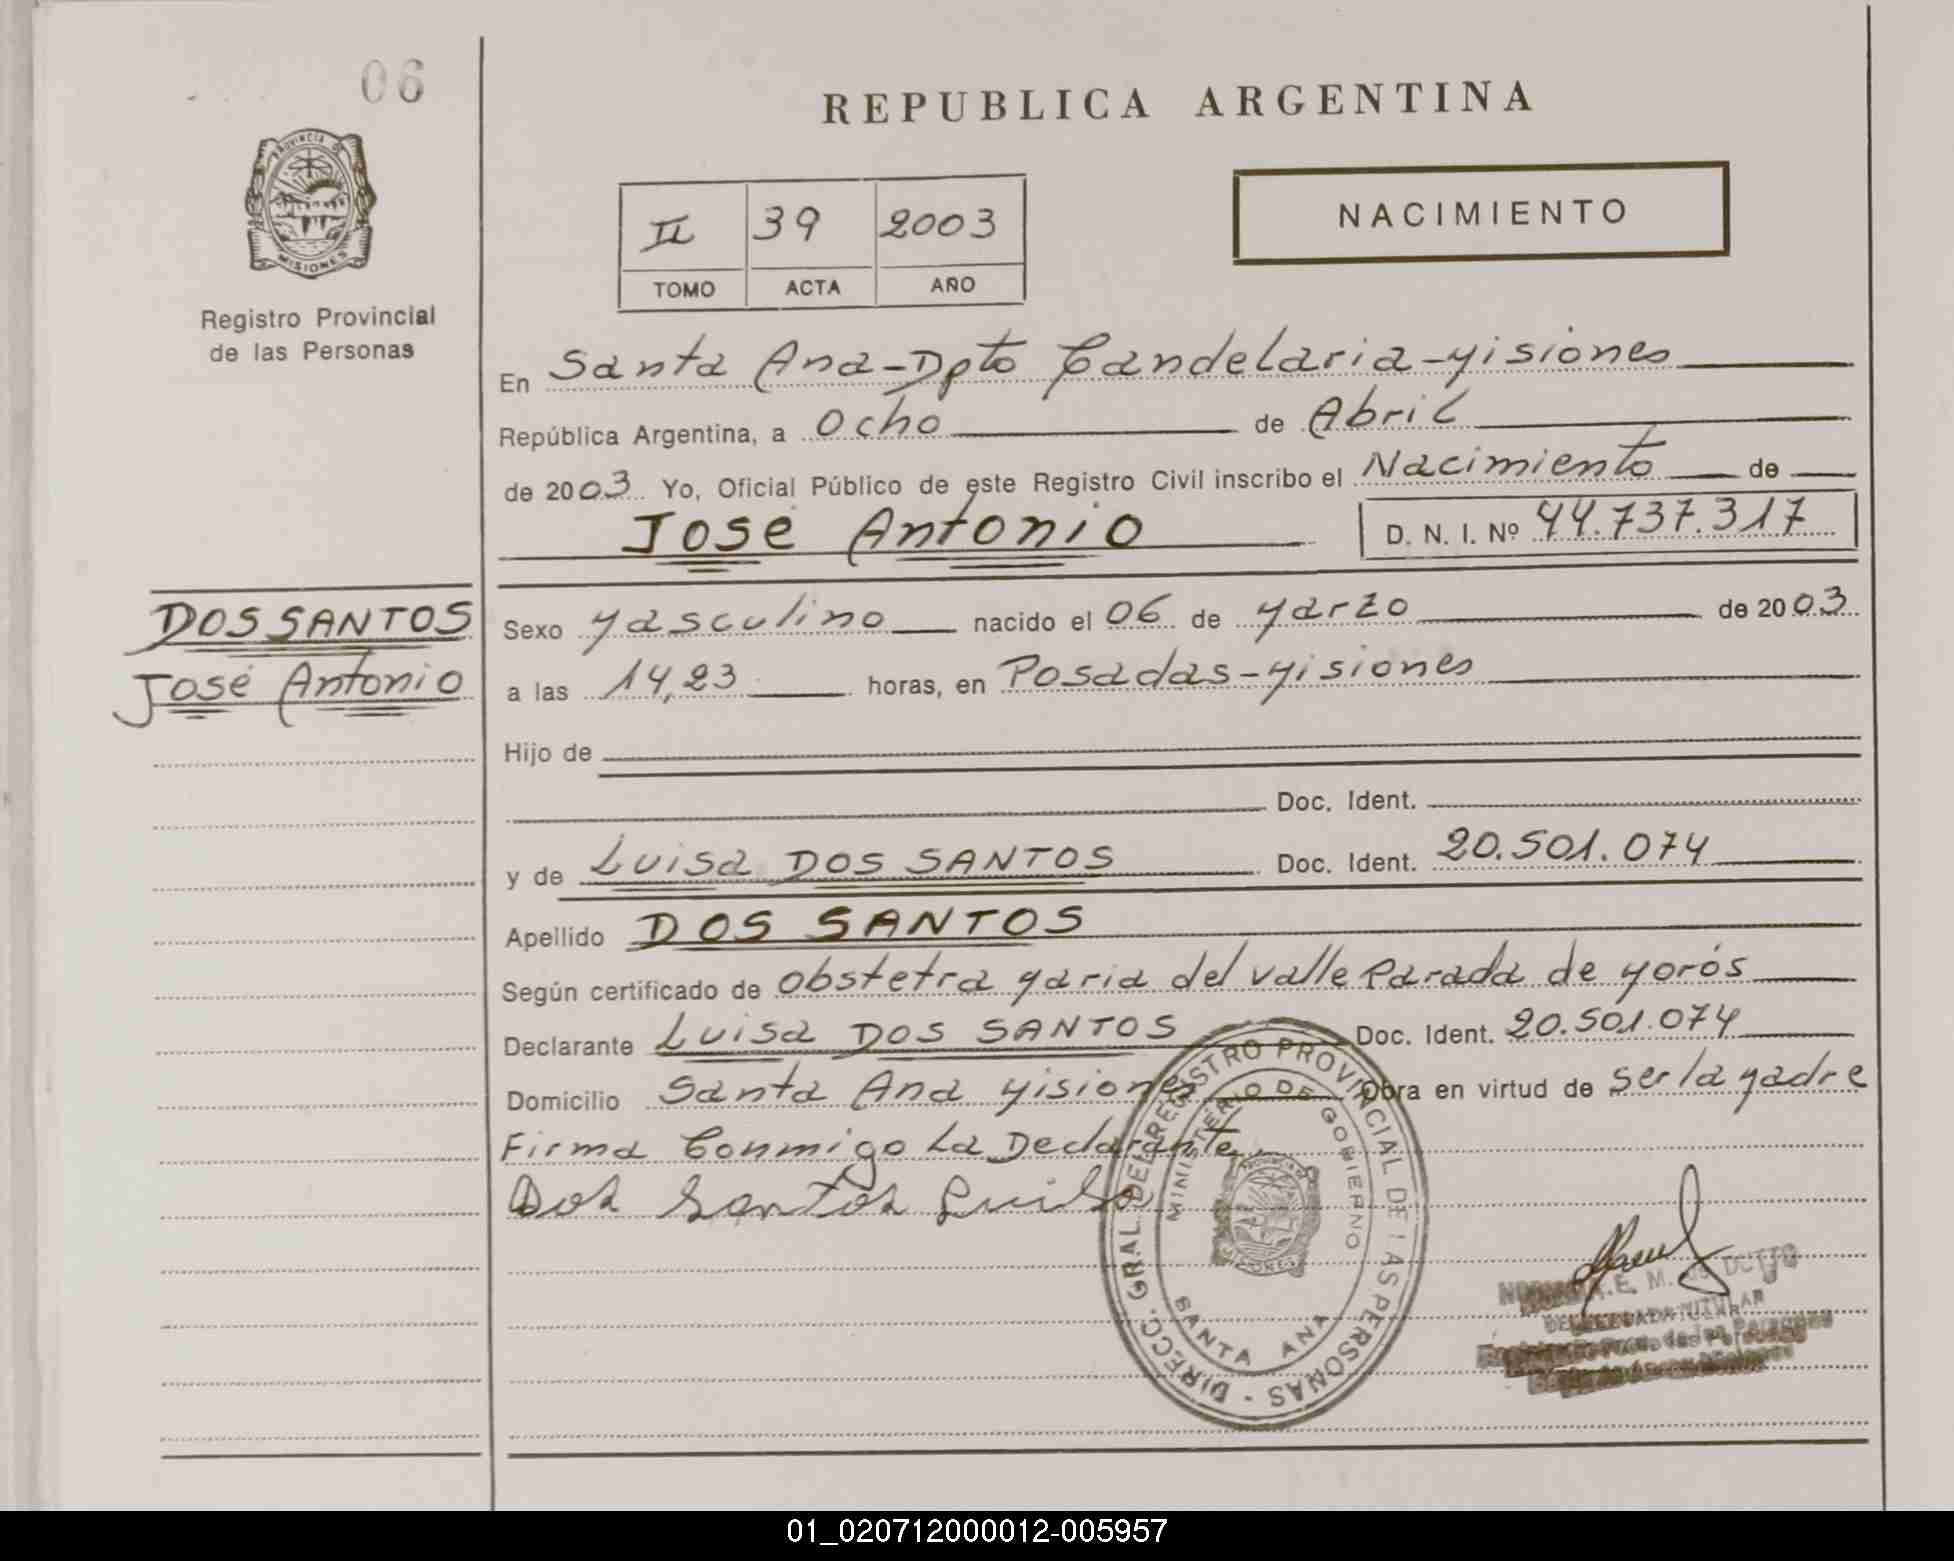 06
REPUBLICA ARGENTINA
PROVINCIA DE
MISIONES
Registro Provincial
de las Personas
NACIMIENTO
II 39 2003
TOMO ACTA AÑO
En Santa Ana-Dpto Candelaria-Misiones
República Argentina, a Ocho de Abril
de 2003 Yo, Oficial Público de este Registro Civil inscribo el Nacimiento de
José Antonio D. N. I. Nº 44.737.317
DOS SANTOS
José Antonio
Sexo Masculino nacido el 06 de Marzo de 2003
a las 14,23 horas, en Posadas-Misiones
Hijo de
Doc. Ident.
y de Luisa DOS SANTOS Doc. Ident. 20.501.074
Apellido DOS SANTOS
Según certificado de obstetra Maria del valle Parada de Morós
Declarante Luisa DOS SANTOS Doc. Ident. 20.501.074
Domicilio Santa Ana Misiones Obra en virtud de ser la Madre
Firma Conmigo La Declarante
Dos Santos Luisa
DIRECC. GRAL. DEL REGISTRO PROVINCIAL DE LAS PERSONAS -
MINISTERIO DE GOBIERNO
SANTA ANA
01_020712000012-005957